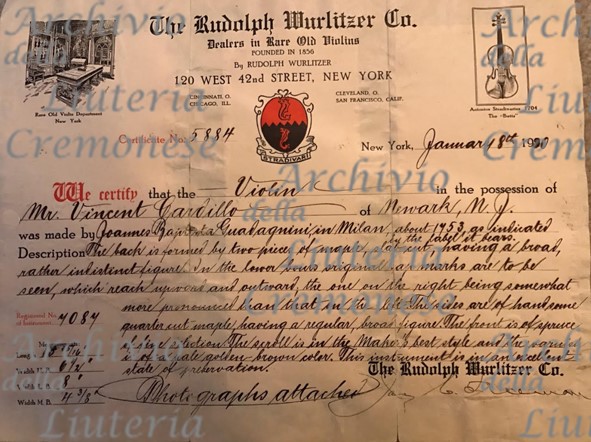 The Rudolph Wurlitzer Co.
Dealers in Rare Old Violins
FOUNDED IN 1856
By RUDOLPH WURLITZER
120 WEST 42nd STREET, NEW YORK
CINCINNATI, O. CLEVELAND, O.
CHICAGO, ILL. SAN FRANCISCO, CALIF.
Rare Old Violin Department
New York
Antonius Stradivarius, 1704
The "Betts"
STRADIVARI
Certificate No. 5884
New York, January 18th
We certify that the Violin in the possession of
Mr. Vincent Cardillo of Newark, N.J.
was made by Joannes Baptista Guadagnini, in Milan, about 1753, as indicated
by the label it bears.
Description The back is formed by two pieces of maple, having a broad,
rather indistinct figure. In the lower bouts original marks are to be
seen, which reach upward and outward, the one on the right being somewhat
more pronounced than that on the left. The sides are of handsome
quarter cut maple, having a regular, broad figure. The front is of spruce
of choice selection. The scroll is in the Maker's best style and the
is of a pale golden-brown color. This instrument is in an excellent
state of preservation.
Registered No.
of Instrument 4087
Length
Width U.B. 6 1/2
Width M.B. 4 3/8
The Rudolph Wurlitzer Co.
Photographs attached
Archivio
della
Liuteria
Cremonese